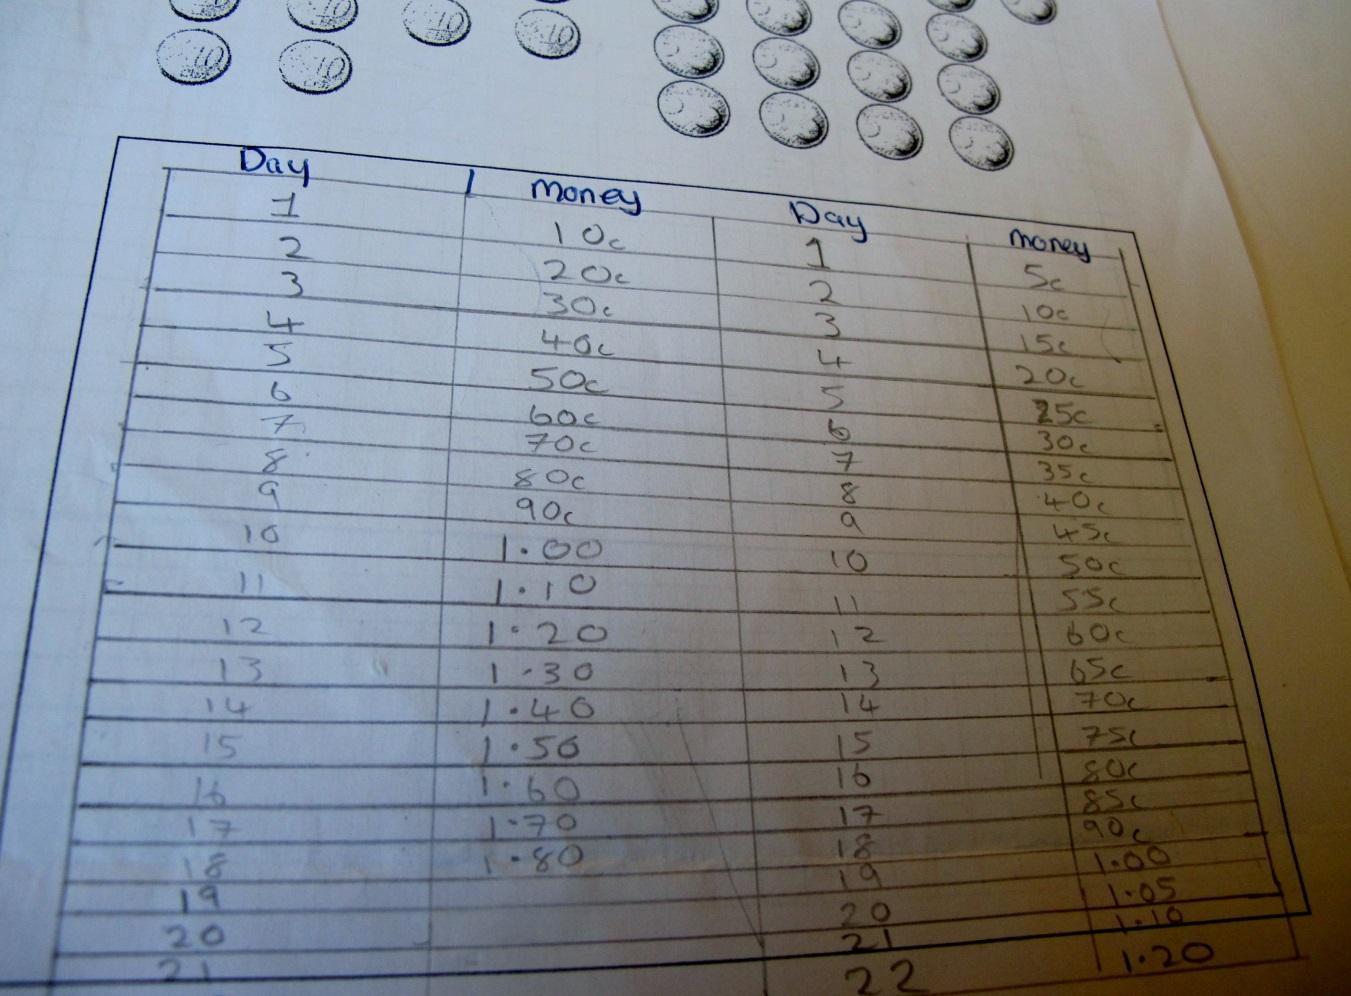 10 10 10 10
Day Money Day Money
1 10c 1 5c
2 20c 2 10c
3 30c 3 15c
4 40c 4 20c
5 50c 5 25c
6 60c 6 30c
7 70c 7 35c
8 80c 8 40c
9 90c 9 45c
10 1.00 10 50c
11 1.10 11 55c
12 1.20 12 60c
13 1.30 13 65c
14 1.40 14 70c
15 1.50 15 75c
16 1.60 16 80c
17 1.70 17 85c
18 1.80 18 90c
19 19 1.00
20 20 1.05
21 21 1.10
22 1.20